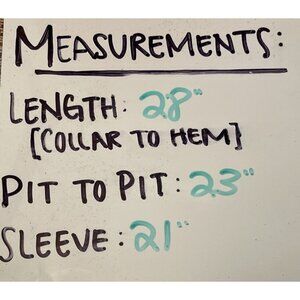 MEASUREMENTS:
LENGTH: 28"
[COLLAR TO HEM]
PIT TO PIT: 23"
SLEEVE: 21"